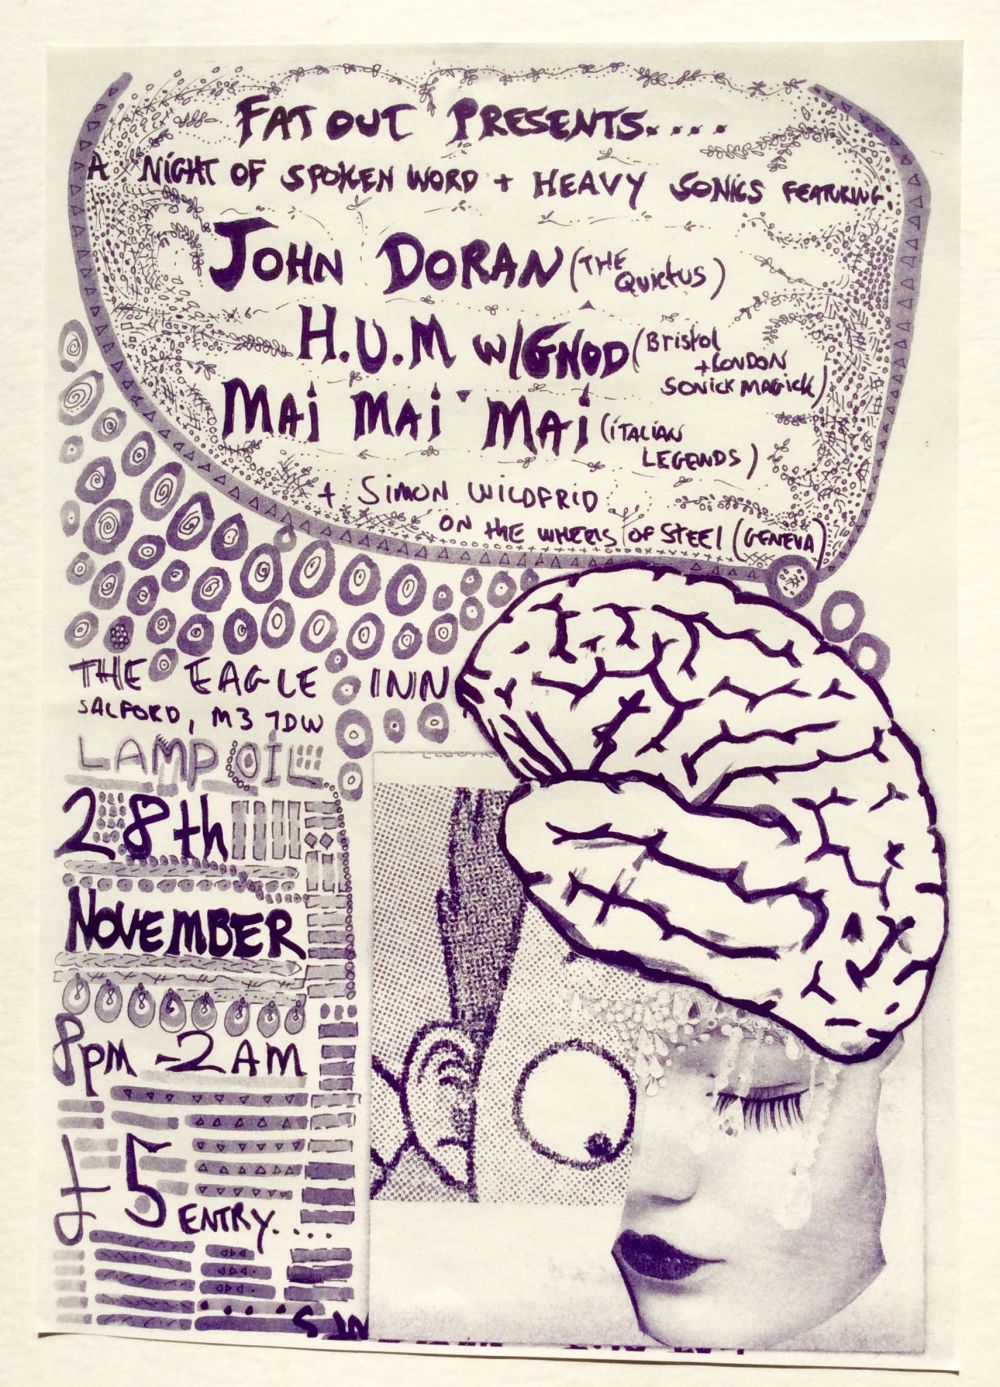 FAT OUT PRESENTS....
A NIGHT OF SPOKEN WORD + HEAVY SONICS FEATURING:
JOHN DORAN (THE QUIETUS)
H.U.M W/GNOD (Bristol +LONDON SONICK MAGICK)
MAi MAi MAi (iTALIAN LEGENDS)
+ SiMON WILDFRID
ON tHE WHEELS OF STEEL (GENEVA)
THE EAGLE INN
SALFORD, M3 7DW
LAMP OIL
28th
NOVEMBER
8pm - 2AM
£5 ENTRY....